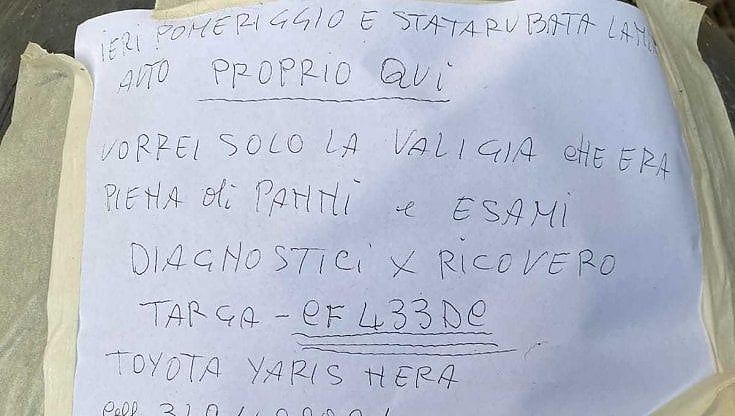 IERI POMERIGGIO E STATA RUBATA LA MIA
AUTO PROPRIO QUI
VORREI SOLO LA VALIGIA CHE ERA
PIENA di PANNI e ESAMI
DIAGNOSTICI X RICOVERO
TARGA - EF433DE
TOYOTA YARIS NERA
Cell.